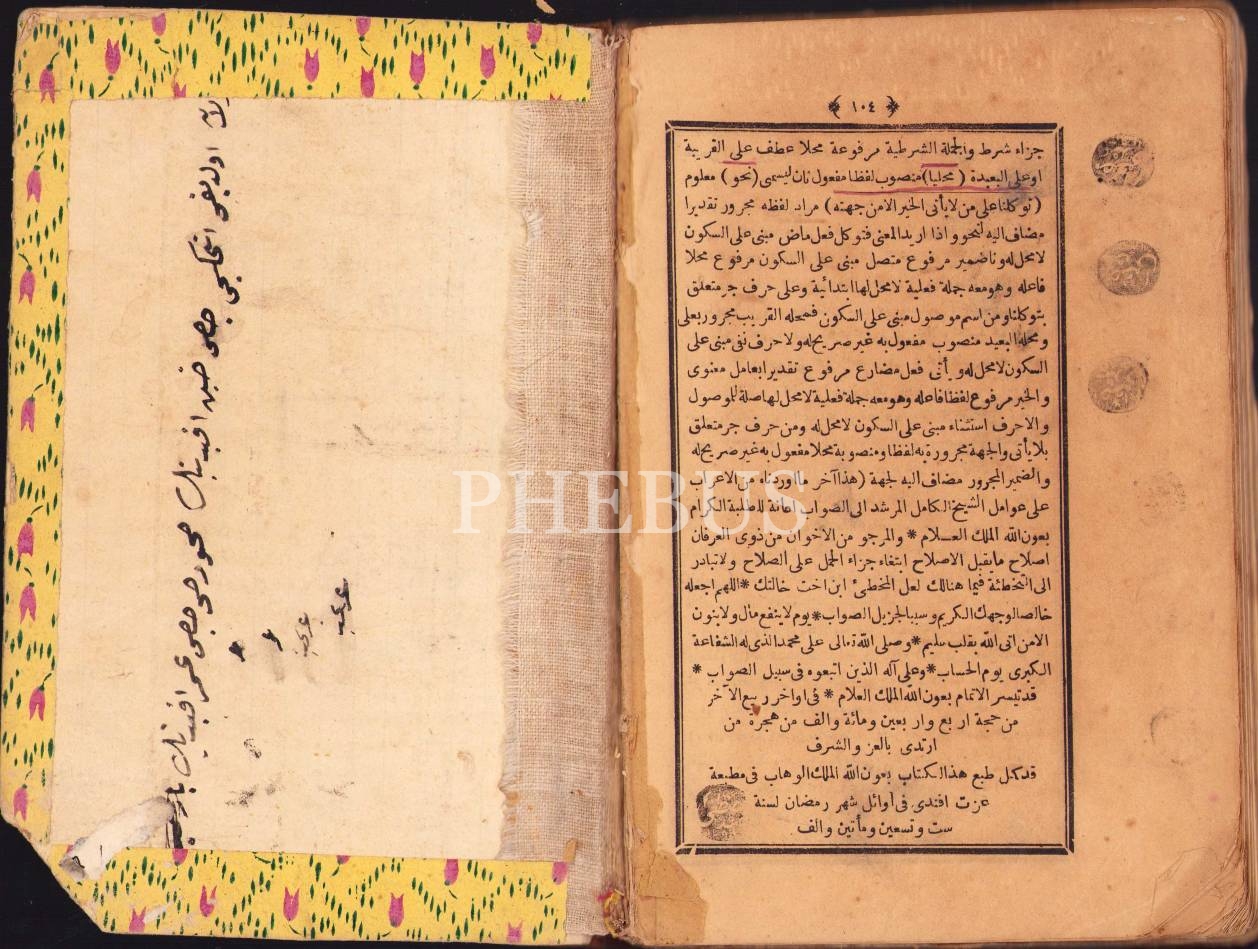 ﴿ ١٠٤ ﴾
جزاء شرط والجملة الشرطية مرفوعة محلا عطف على القريبة
او على البعيدة ( محليا ) منصوب لفظا مفعول ثان ليسمى ( نحو ) معلوم
( توكلنا على من لا يأتى الخير الا من جهته ) مراد لفظه مجرور تقديرا
مضاف اليه لنحو و اذا اريد المعنى فتوكل فعل ماض مبنى على السكون
لا محل له و نا ضمير مرفوع متصل مبنى على السكون مرفوع محلا
فاعله وهو معه جملة فعلية لا محل لها ابتدائية وعلى حرف جر متعلق
بتوكلنا ومن اسم موصول مبنى على السكون فمحله القريب مجرور بعلى
ومحله البعيد منصوب مفعول به غير صريح له ولا حرف نفى مبنى على
السكون لا محل له و يأتى فعل مضارع مرفوع تقديرا بعامل معنوى
والخير مرفوع لفظا فاعله وهو معه جملة فعلية لا محل لها صلة للموصول
والا حرف استثناء مبنى على السكون لا محل له ومن حرف جر متعلق
بلا يأتى والجهة مجرورة به لفظا ومنصوبة محلا مفعول به غير صريح له
والضمير المجرور مضاف اليه لجهة ( هذا آخر ما اوردناه من الاعراب
على عوامل الشيخ الكامل المرشد الى الصواب اعانة للطلبة الكرام
بعون الله الملك العلام * والمرجو من الاخوان من ذوى العرفان
اصلاح ما يقبل الاصلاح ابتغاء جزاء الحمل على الصلاح ولا تبادر
الى التخطئة فيما هنالك لعل المخطئ ابن اخت خالتك * اللهم اجعله
خالصا لوجهك الكريم و سببا لجزيل الصواب * يوم لا ينفع مال ولا بنون
الا من اتى الله بقلب سليم * وصلى الله تعالى على محمد الذى له الشفاعة
الكبرى يوم الحساب * وعلى آله الذين اتبعوه فى سبيل الصواب *
قد تيسر الاتمام بعون الله الملك العلام * فى اواخر ربيع الآخر
من حجة اربع واربعين ومائة والف من هجرة من
ارتدى بالعز والشرف
قد كمل طبع هذا الكتاب بعون الله الملك الوهاب فى مطبعة
عزت افندى فى اوائل شهر رمضان لسنة
ست وتسعين ومأتين والف
PHEBUS